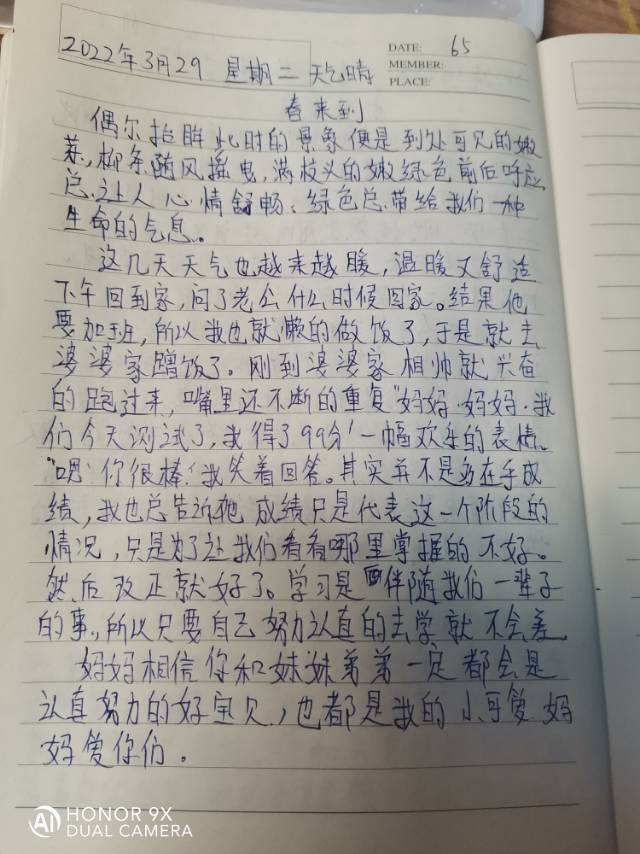 DATE: 65
2022年3月29 星期二 天气晴
MEMBER:
PLACE:
春来到
偶尔抬眸此时的景象便是到处可见的嫩
芽,柳条随风摇曳,满枝头的嫩绿色前后呼应
总让人心情舒畅、绿色总带给我们一种
生命的气息。
这几天天气也越来越暖,温暖又舒适
下午回到家,问了老公什么时候回家。结果他
要加班,所以我也就懒的做饭了,于是就去
婆婆家蹭饭了。刚到婆婆家相帅就兴奋
的跑过来,嘴里还不断的重复"妈妈·妈妈·我
们今天测试了,我得了99分"一幅欢乐的表情。
"嗯!你很棒!"我笑着回答。其实并不是多在乎成
绩,我也总告诉他成绩只是代表这一个阶段的
情况,只是为了让我们看看哪里掌握的不好。
然后改正就好了。学习是伴随我们一辈子
的事,所以只要自己努力认真的去学就不会差
妈妈相信你和妹妹弟弟一定都会是
认真努力的好宝贝,也都是我的小可爱.妈
妈爱你们。
HONOR 9X
AI DUAL CAMERA